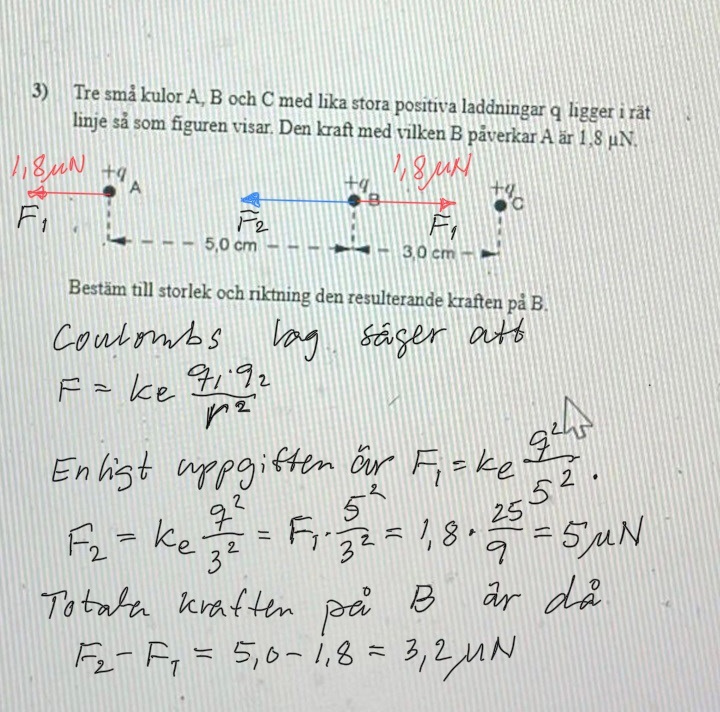 3) Tre små kulor A, B och C med lika stora positiva laddningar q ligger i rät
linje så som figuren visar. Den kraft med vilken B påverkar A är 1,8 µN.
1,8 µN +q A +q B 1,8 µN +q C
F₁ F₂ F₁
5,0 cm 3,0 cm
Bestäm till storlek och riktning den resulterande kraften på B.
Coulombs lag säger att
F = ke q₁·q₂/r²
Enligt uppgiften är F₁ = ke q²/5².
F₂ = ke q²/3² = F₁·5²/3² = 1,8·25/9 = 5 µN
Totala kraften på B är då
F₂ - F₁ = 5,0 - 1,8 = 3,2 µN